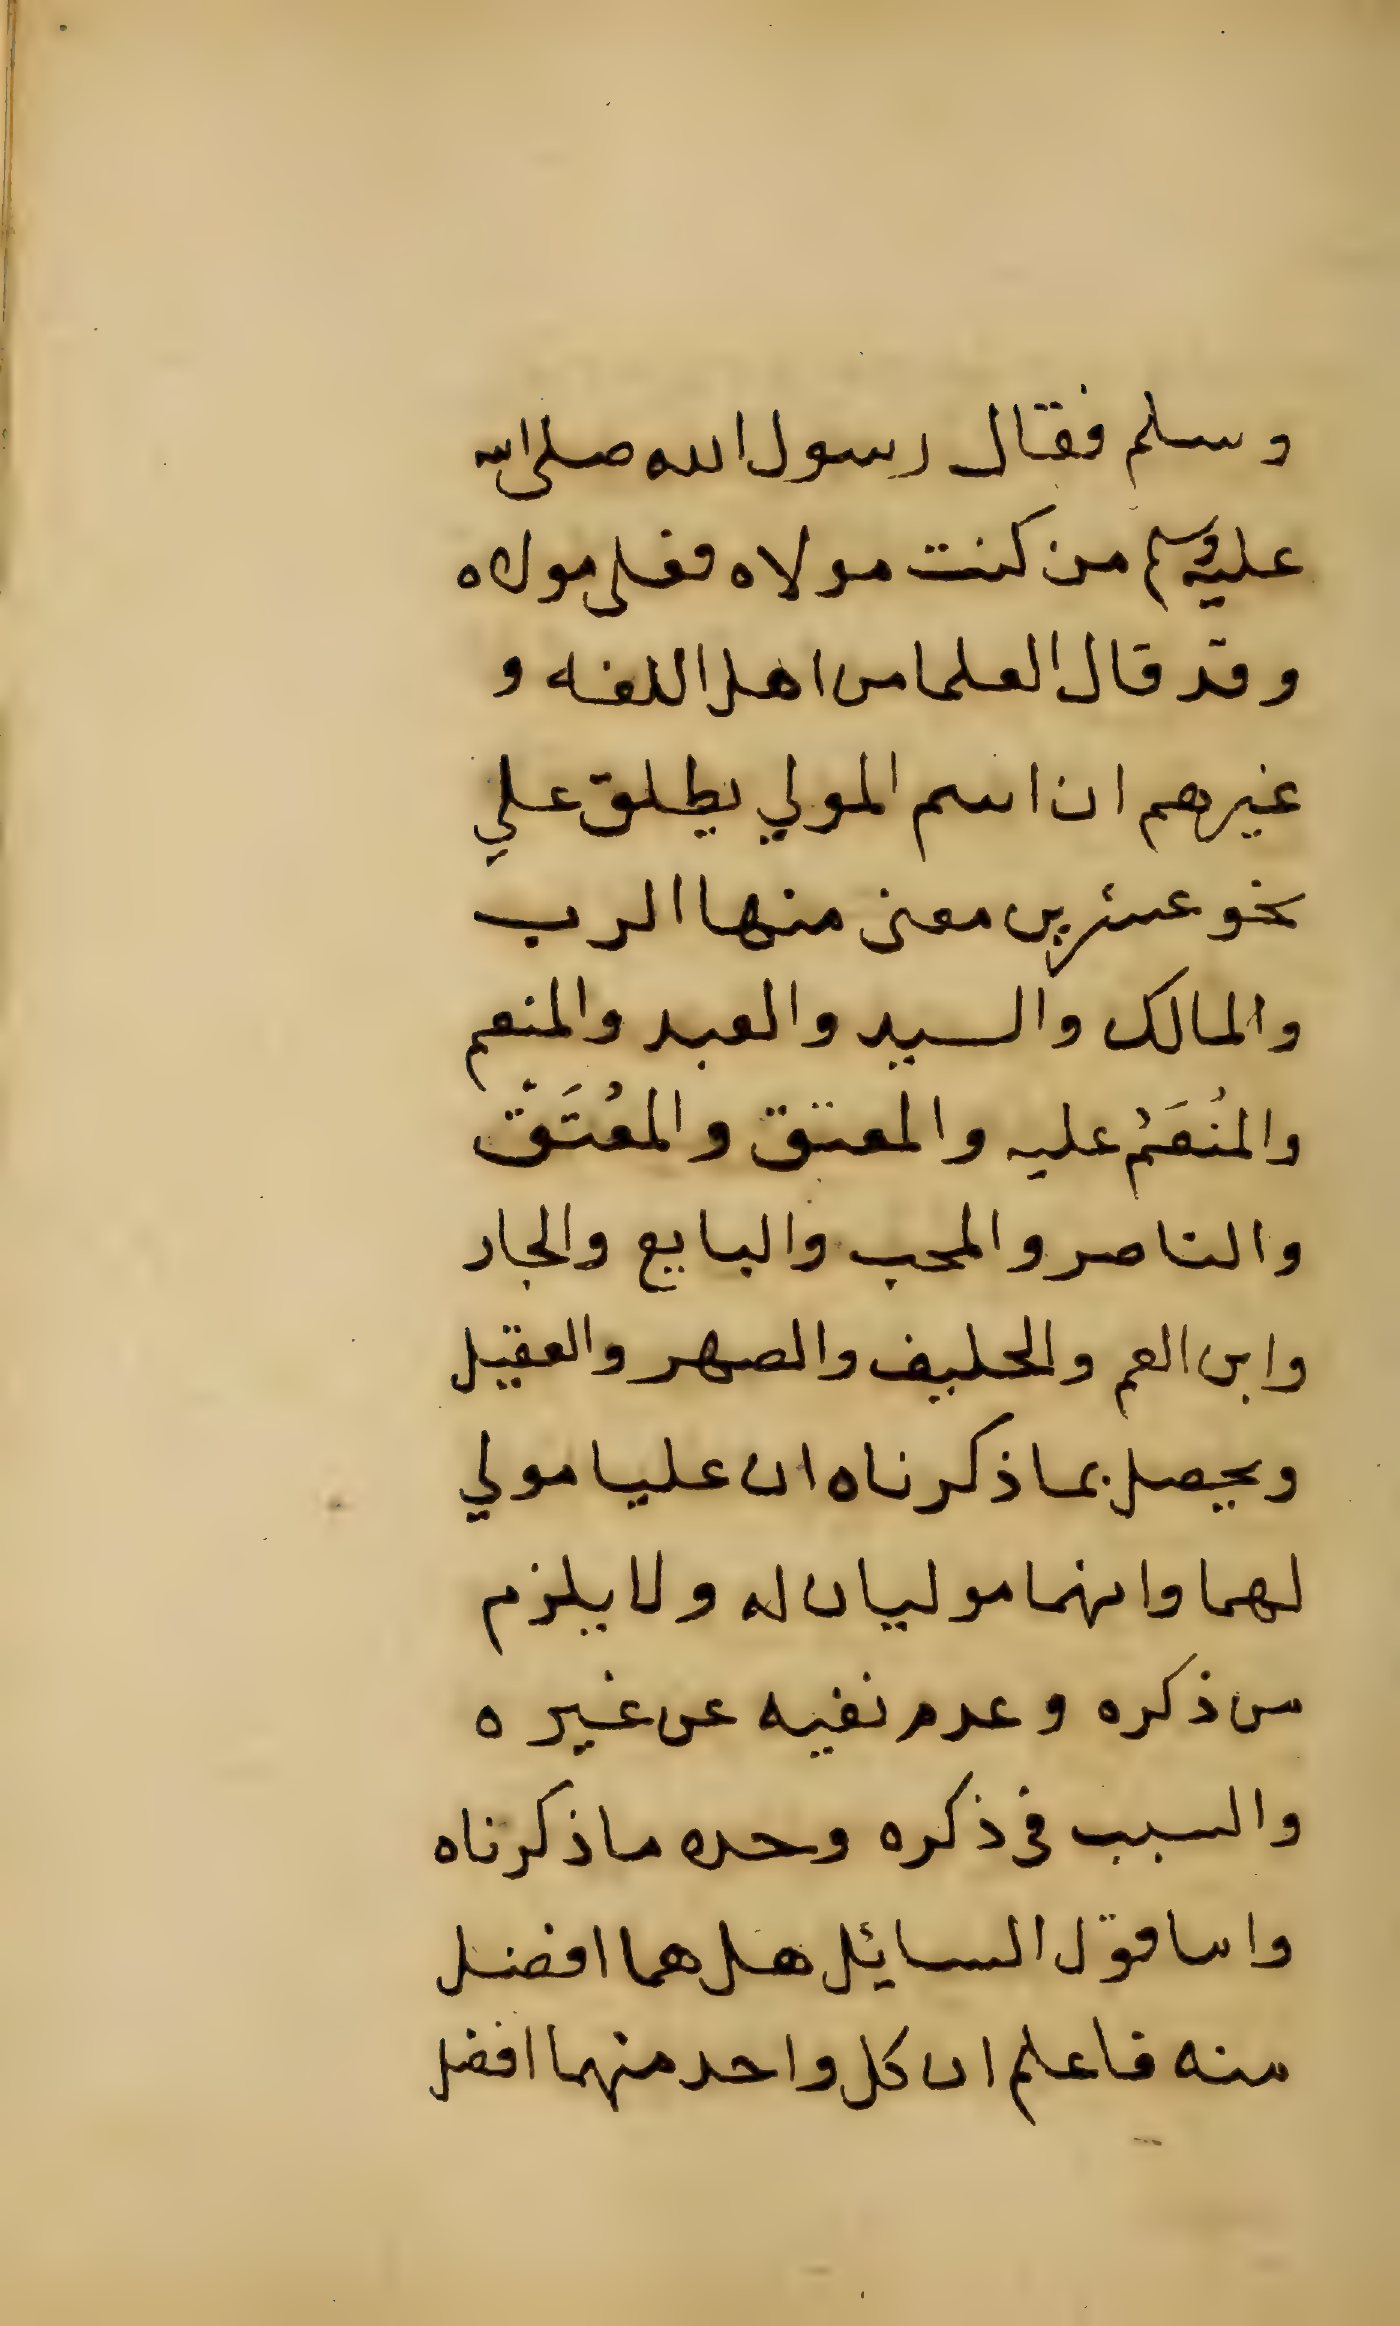 وسلم فقال رسول الله صلى الله
عليه وسلم من كنت مولاه فعلي مولاه
وقد قال العلما من اهل اللغه و
غيرهم ان اسم المولي يطلق علي
نحو عشرين معنى منها الرب
والمالك والسيد والعبد والمنعم
والمُنعَمُ عليه والمعتق والمعُتَق
والناصر والمحب والبايع والجار
وابن العم والحليف والصهر والعقيل
ويحصل بما ذكرناه ان عليا مولي
لهما وانهما موليان له ولا يلزم
من ذكره وعدم نفيه عن غيره
والسبب في ذكره وحده ما ذكرناه
واما قول السايل هل هما افضل
منه فاعلم ان كل واحد منهما افضل